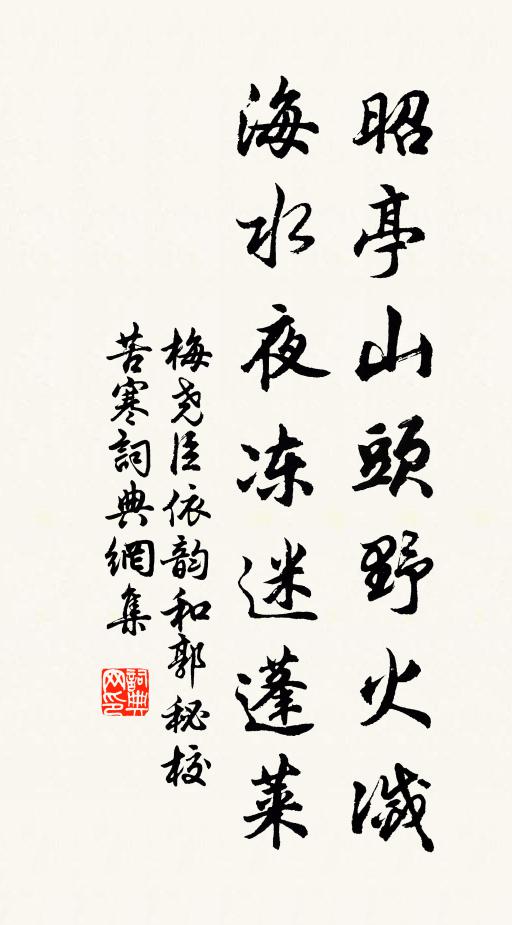 昭亭山頭野火滅
海水夜冻迷蓬莱
梅尧臣依韵和郭秘校
苦寒詞典網集
詞典网印